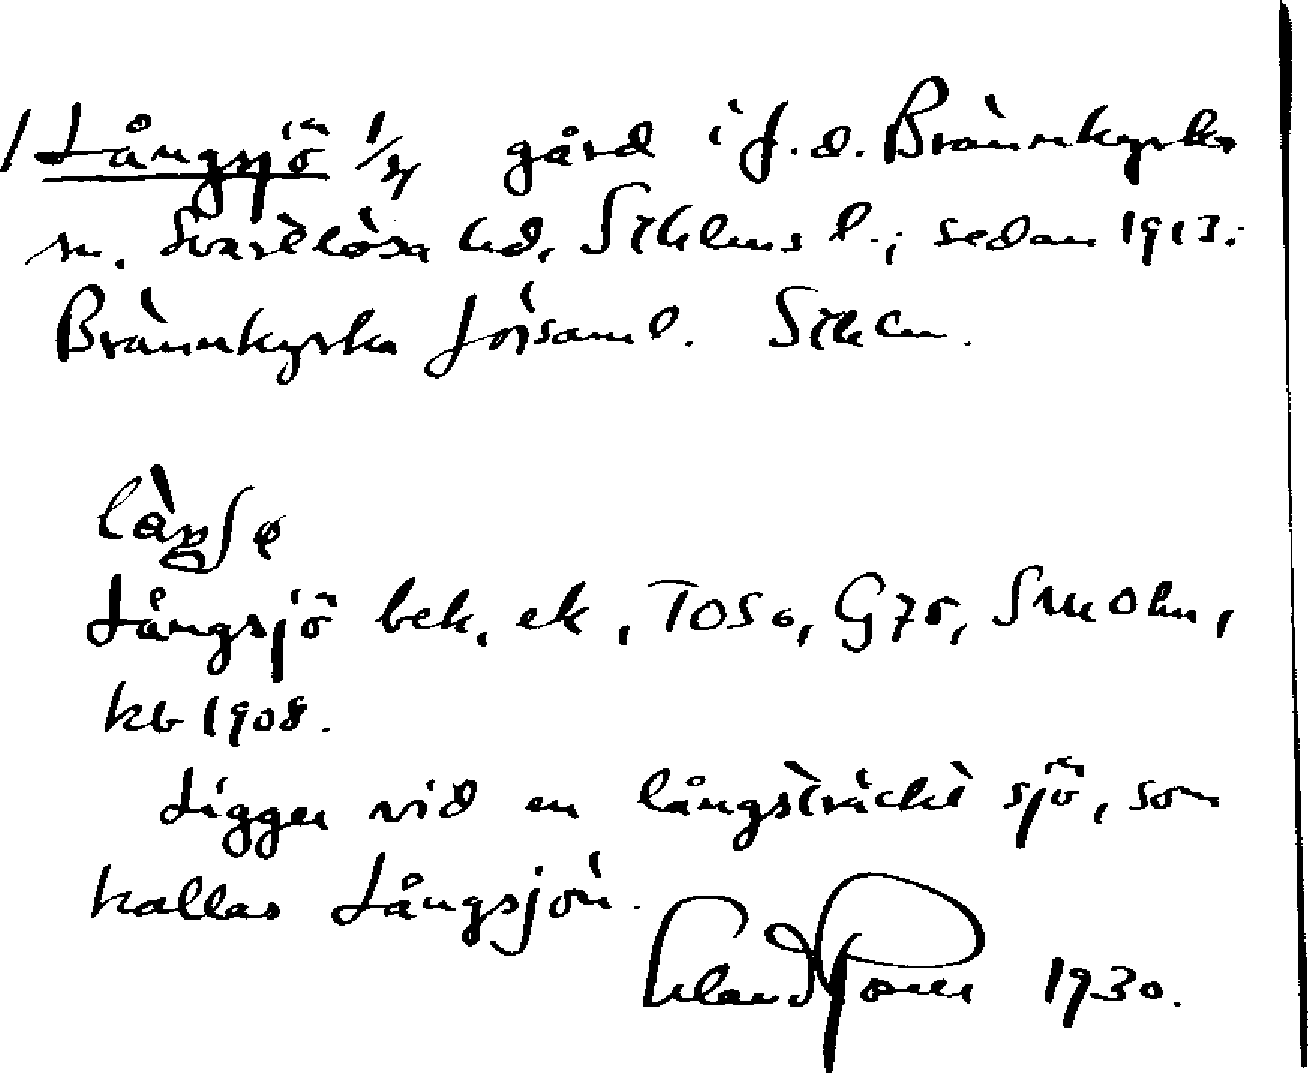 Långsjö 1/4 gård i f.d. Brännkyrka
sn. Svartlösa hd, Sthlms l.; sedan 1913:
Brännkyrka församl. Sthlm.
Långsjö bek. ek, TOSo, G75, SMOhn,
kb 1908.
Ligger vid en långsträckt sjö, som
kallas Långsjön.
1930.